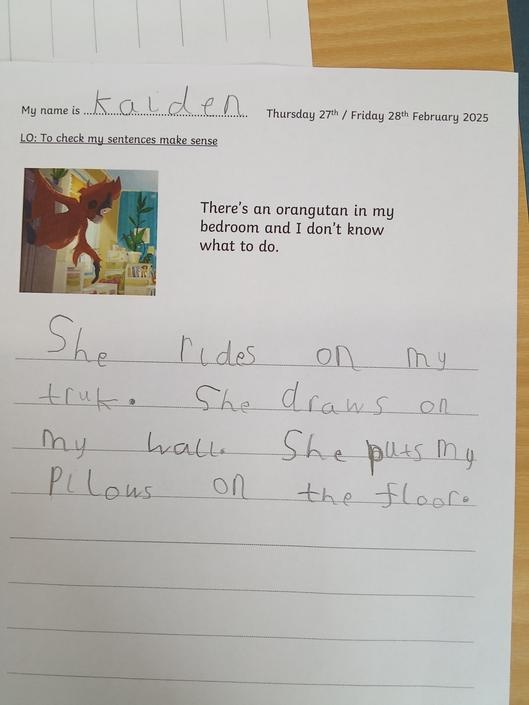 My name is Kaiden
Thursday 27th / Friday 28th February 2025
LO: To check my sentences make sense
There's an orangutan in my
bedroom and I don't know
what to do.
She rides on my
truk. She draws on
my wall. She puts my
Pilows on the floor.